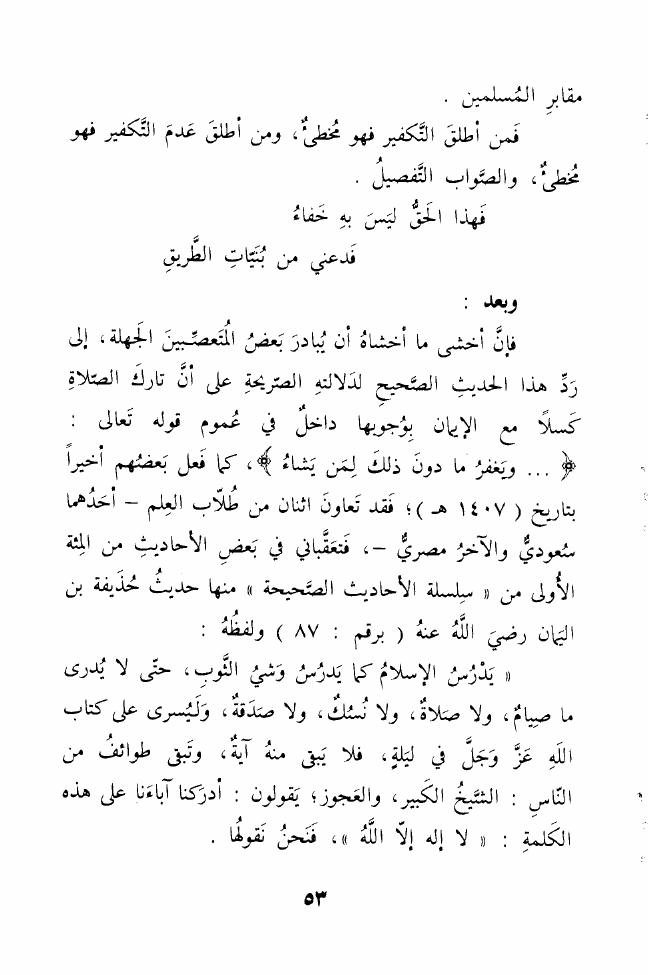 مقابرِ المُسلمين .
فَمن أطلقَ التَّكفير فهو مُخطئٌ، ومن أطلقَ عَدمَ التَّكفير فهو
مُخطئٌ، والصَّواب التَّفصيلُ .
فَهذا الحَقُّ ليَسَ بهِ خَفاءُ
فَدعني من بُنَيّاتِ الطَّريقِ
وبعد :
فإنَّ أخشى ما أخشاهُ أن يُبادرَ بَعضُ المُتَعصِّبينَ الجَهلة، إلى
رَدِّ هذا الحديثِ الصَّحيحِ لدَلالتهِ الصّريحةِ على أنَّ تاركَ الصّلاةِ
كَسلًا مع الإيمان بِوُجوبها داخلٌ في عُموم قوله تَعالى :
﴿ ... ويَغفرُ ما دونَ ذلكَ لِمَن يَشاءُ ﴾، كما فَعل بَعضُهم أخيراً
بتاريخ ( ١٤٠٧ هـ )؛ فَقد تَعاونَ اثنان من طُلّاب العِلم – أحَدُهما
سُعوديٌّ والآخرُ مصريٌّ –، فَتَعَقَّباني في بَعضِ الأحاديثِ من المِئة
الأُولى من « سِلسلة الأحاديث الصَّحيحة » منها حديثُ حُذَيفة بن
اليَمان رضيَ اللَّهُ عنهُ ( برقم : ٨٧ ) ولفظُهُ :
« يَدْرُسُ الإسلامُ كما يَدرُسُ وَشيُ الثَّوبِ، حتّى لا يُدرى
ما صيامٌ، ولا صَلاةٌ، ولا نُسُكٌ، ولا صَدَقةٌ، وَليُسرى على كتاب
اللَهِ عَزَّ وَجَلَّ في ليَلةٍ، فلا يَبقى منهُ آيةٌ، وتَبقى طوائفُ من
النّاسِ : الشَّيخُ الكَبير، والعَجوز؛ يَقولون : أدرَكنا آباءَنا على هذه
الكَلمةِ : « لا إله إلاّ اللَّهُ »، فَنَحنُ نَقولُها .
٥٣